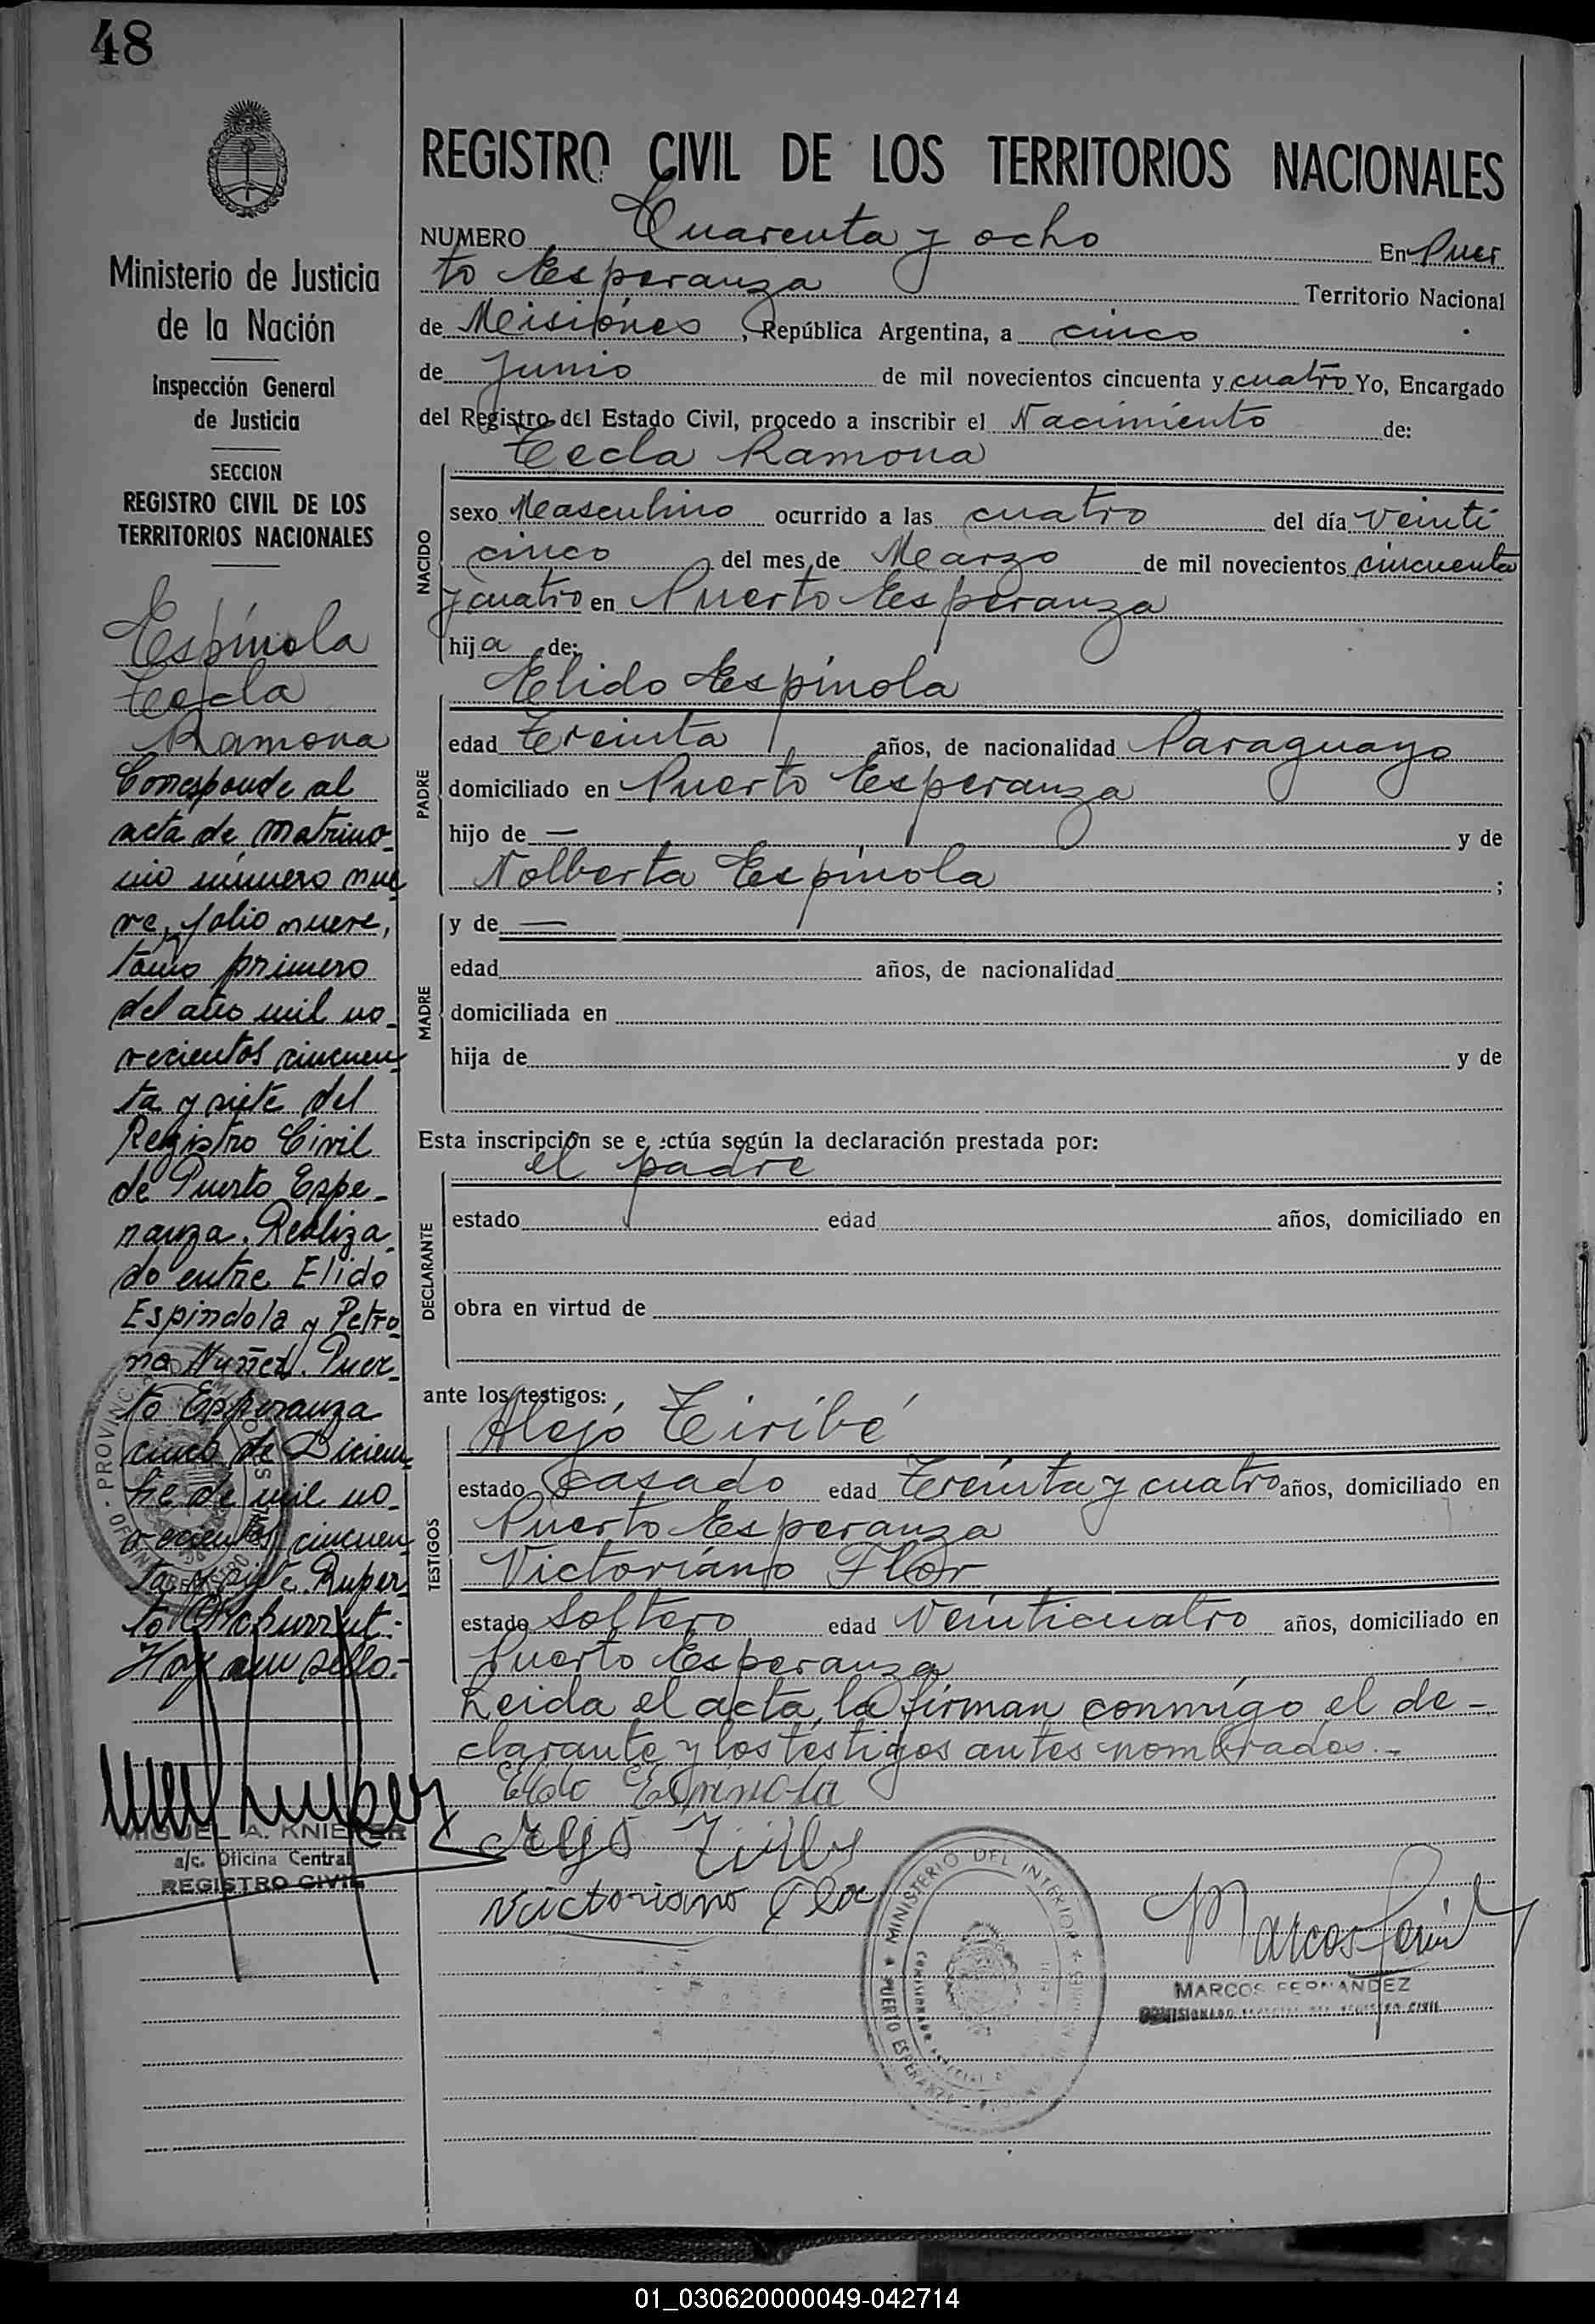 48
Ministerio de Justicia
de la Nación
Inspección General
de Justicia
SECCION
REGISTRO CIVIL DE LOS
TERRITORIOS NACIONALES
Espínola
Tecla
Ramona
Corresponde al
acta de matrimo-
nio número nue-
ve, folio nueve,
tomo primero
del año mil no-
vecientos cincuen-
ta y siete del
Registro Civil
de Puerto Espe-
ranza. Realiza-
do entre Elido
Espindola y Petro-
na Nuñez. Puer-
to Esperanza
cinco de Diciem-
bre de mil no-
vecientos cincuen-
ta y siete. Ruper-
to
Hay un sello.-
MIGUEL A. KNIEPER
a/c. Oficina Central
REGISTRO CIVIL
REGISTRO CIVIL DE LOS TERRITORIOS NACIONALES
NUMERO Cuarenta y ocho En Puer
to Esperanza Territorio Nacional
de Misiones, República Argentina, a cinco
de Junio de mil novecientos cincuenta y cuatro Yo, Encargado
del Registro del Estado Civil, procedo a inscribir el Nacimiento de:
Tecla Ramona
NACIDO
sexo Masculino ocurrido a las cuatro del día veinti
cinco del mes de Marzo de mil novecientos cincuenta
y cuatro en Puerto Esperanza
hija de:
Elido Espínola
PADRE
edad Treinta años, de nacionalidad Paraguayo
domiciliado en Puerto Esperanza
hijo de — y de
Nolberta Espínola ;
y de —
MADRE
edad años, de nacionalidad
domiciliada en
hija de y de
Esta inscripción se e ectúa según la declaración prestada por:
el padre
DECLARANTE
estado edad años, domiciliado en
obra en virtud de
ante los testigos:
Alejo Tiribe
TESTIGOS
estado Casado edad Treinta y cuatro años, domiciliado en
Puerto Esperanza
Victoriano Flor
estado Soltero edad Veinticuatro años, domiciliado en
Puerto Esperanza
Leida el acta, la firman conmigo el de-
clarante y los testigos antes nombrados.-
Elido Espinola
Alejo
Victoriano Flor
MINISTERIO DEL INTERIOR
PUERTO ESPERANZA
Marcos
MARCOS FERNANDEZ
COMISIONADO REGISTRO CIVIL
01_030620000049-042714